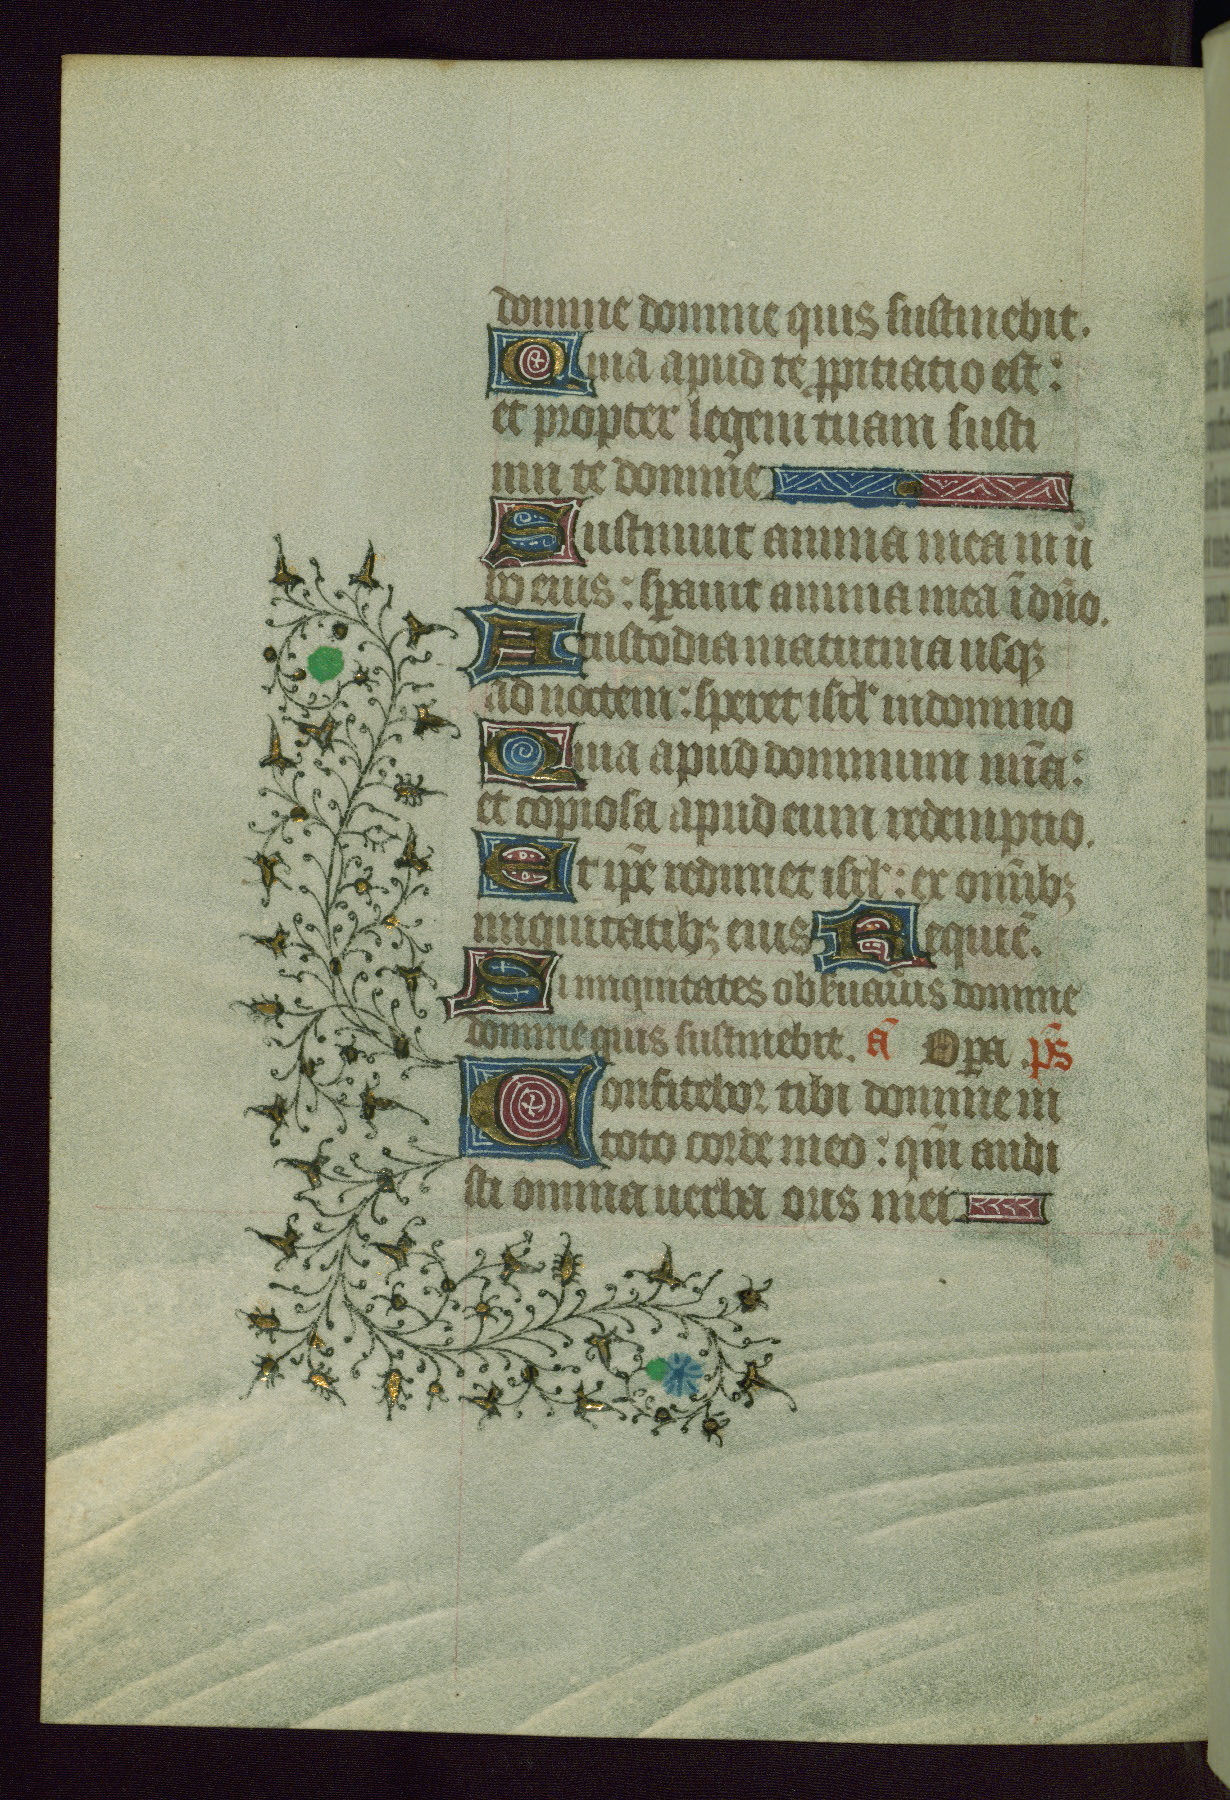 domine domine quis sustinebit.
Quia apud te ꝓpitiatio est :
et propter legem tuam susti
nui te domin̄e
Sustinuit anima mea in ū
bo eius : sꝑauit anima mea ī dn̄o.
A custodia matutina usqꝫ
ad noctem : speret isrl' in domino
Quia apud dominum mīa :
et copiosa apud eum redemptio.
Et ip̄e redimet isrl' : ex omībꝫ
iniquitatibꝫ eius Requiē.
Si iniquitates obseruaūis domine
domine quis sustinebit. ā Oꝑa . ps̄
Confitebor tibi domine in
toto corde meo : qm̄ audi
sti omnia uerba oris mei